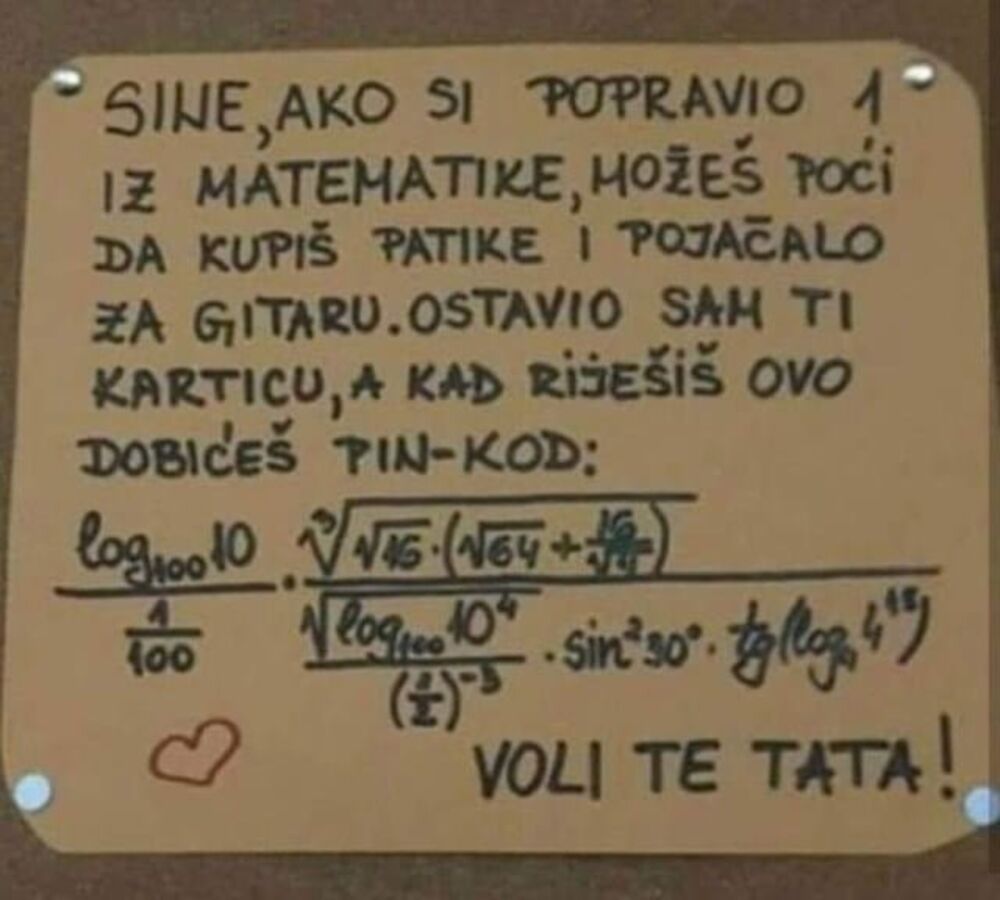 SINE, AKO SI POPRAVIO 1
IZ MATEMATIKE, MOŽEŠ POĆI
DA KUPIŠ PATIKE I POJAČALO
ZA GITARU. OSTAVIO SAM TI
KARTICU, A KAD RIJEŠIŠ OVO
DOBIĆEŠ PIN-KOD:
log₁₀₀10 · ∛√16·(√64+
1/100 √log₁₀₀10⁴ / · sin²30° · tg(log 4
VOLI TE TATA!